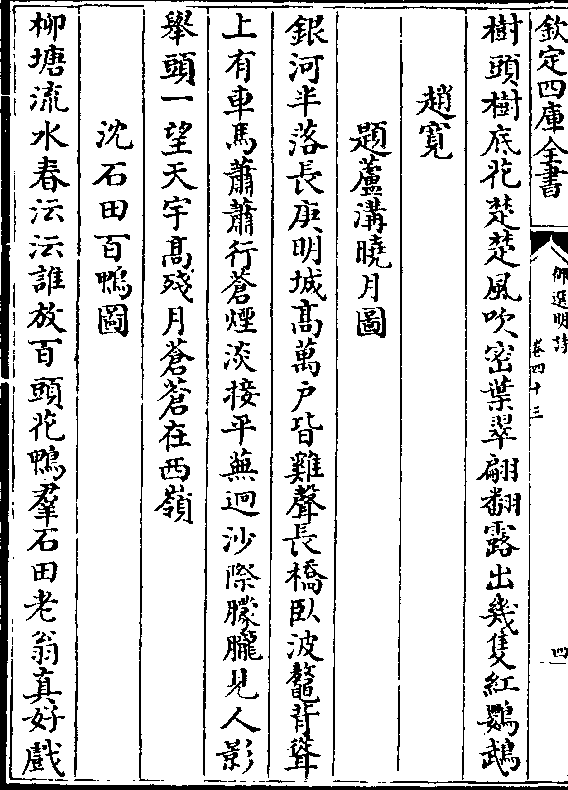 欽定四庫全書
御選明詩
卷四十三
四
樹頭樹底花楚楚風吹密葉翠翩翻露出幾隻紅鸚鵡
趙寛
題蘆溝曉月圖
銀河半落長庚明城髙萬户皆雞聲長橋臥波鼇背聳
上有車馬蕭蕭行蒼煙淡接平蕪迥沙際朦朧見人影
舉頭一望天宇髙殘月蒼蒼在西嶺
沈石田百鴨圖
柳塘流水春沄沄誰放百頭花鴨羣石田老翁真好戲